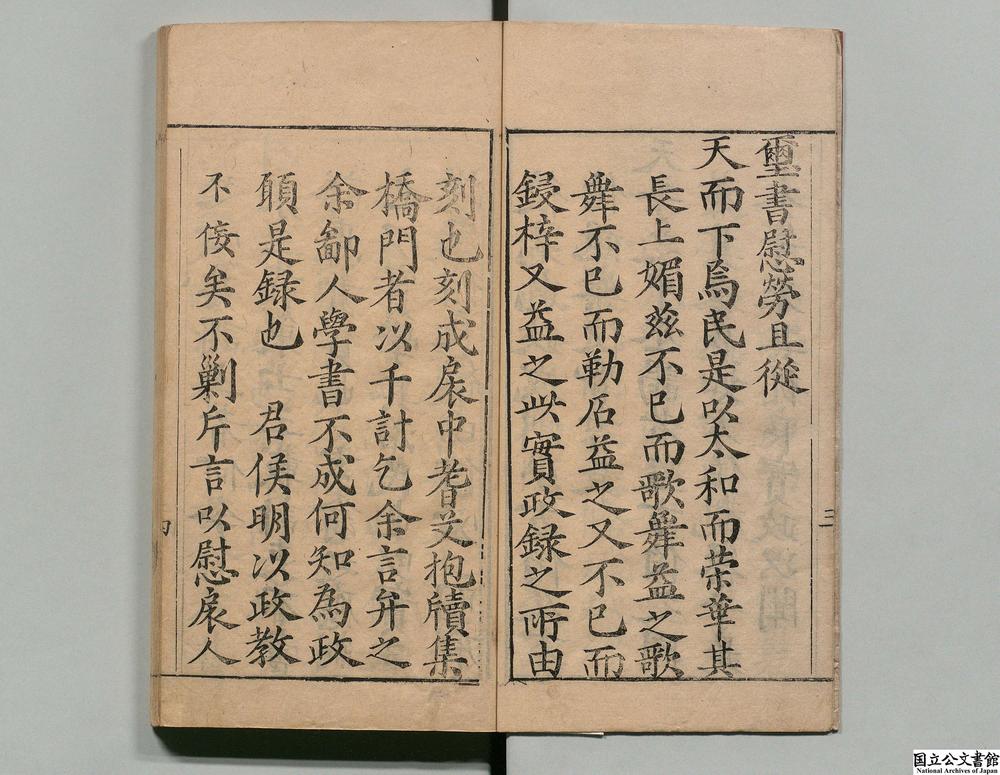 璽書慰勞且從
天而下爲民是以太和而荣華其
長上媚玆不已而歌舞益之歌
舞不已而勒石益之又不已而
鋟梓又益之此實政録之所由
三
刻也刻成㝌中耆艾抱牘集
橋門者以千計乞余言弁之
余鄙人學書不成何知為政
頋是録也 君侯明以政教
不佞矣不剿斥言以慰㝌人
四
国立公文書館
National Archives of Japan